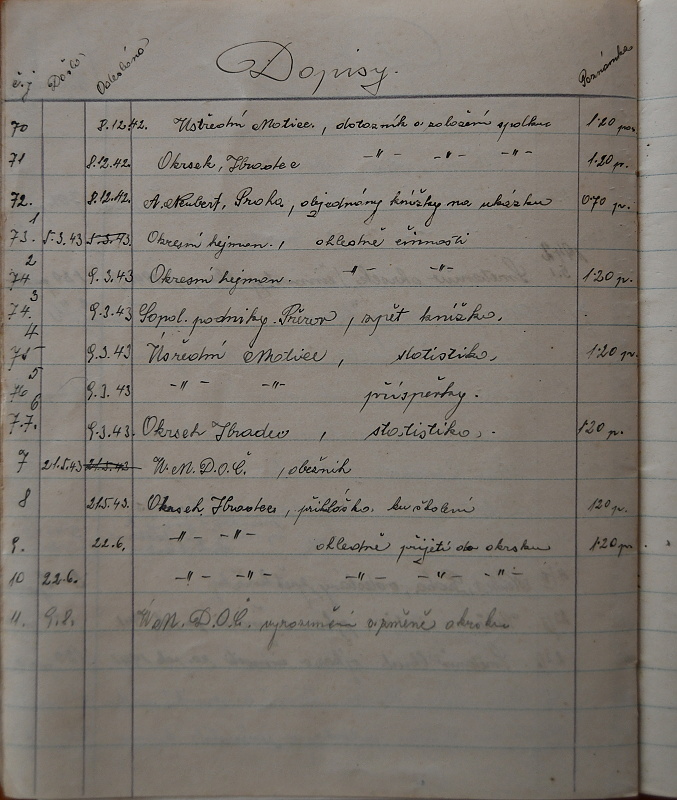 č.j. Došlo Odesláno Dopisy. Poznámka
70 8.12.42. Ústřední Matice, dotazník o založení spolku 1·20
71 8.12.42. Okrsek, Hradec -"- -"- -"- 1·20 p.
72. 8.12.42. A. Neubert, Praha, objednány knížky na ukázku 0·70 p.
1
73. 5.3.43 5.3.43. Okresní hejman., ohledně činnosti
2
74 9.3.43 Okresní hejman. -"- -"- 1·20 p.
3
74. 9.3.43 podniky. Přerov, zpět knížka.
4
75 9.3.43 Ústřední Matice, statistika, 1·20 p.
5
76 9.3.43 -"- -"- příspěvky.
6
7.7. 9.3.43. Okrsek Hradec, statistika. 1·20 p.
7 21.5.43 21.5.43 Ú.M.D.O.Č., oběžník
8 21.5.43. Okrsek Hradec, přihláška ku školení 1·20 p.
9. 22.6. -"- -"- ohledně přijetí do okrsku 1·20 p.
10 22.6. -"- -"- -"- -"- -"-
11. 9.8. Ú.M.D.O.Č. vyrozumění o změně okrsku